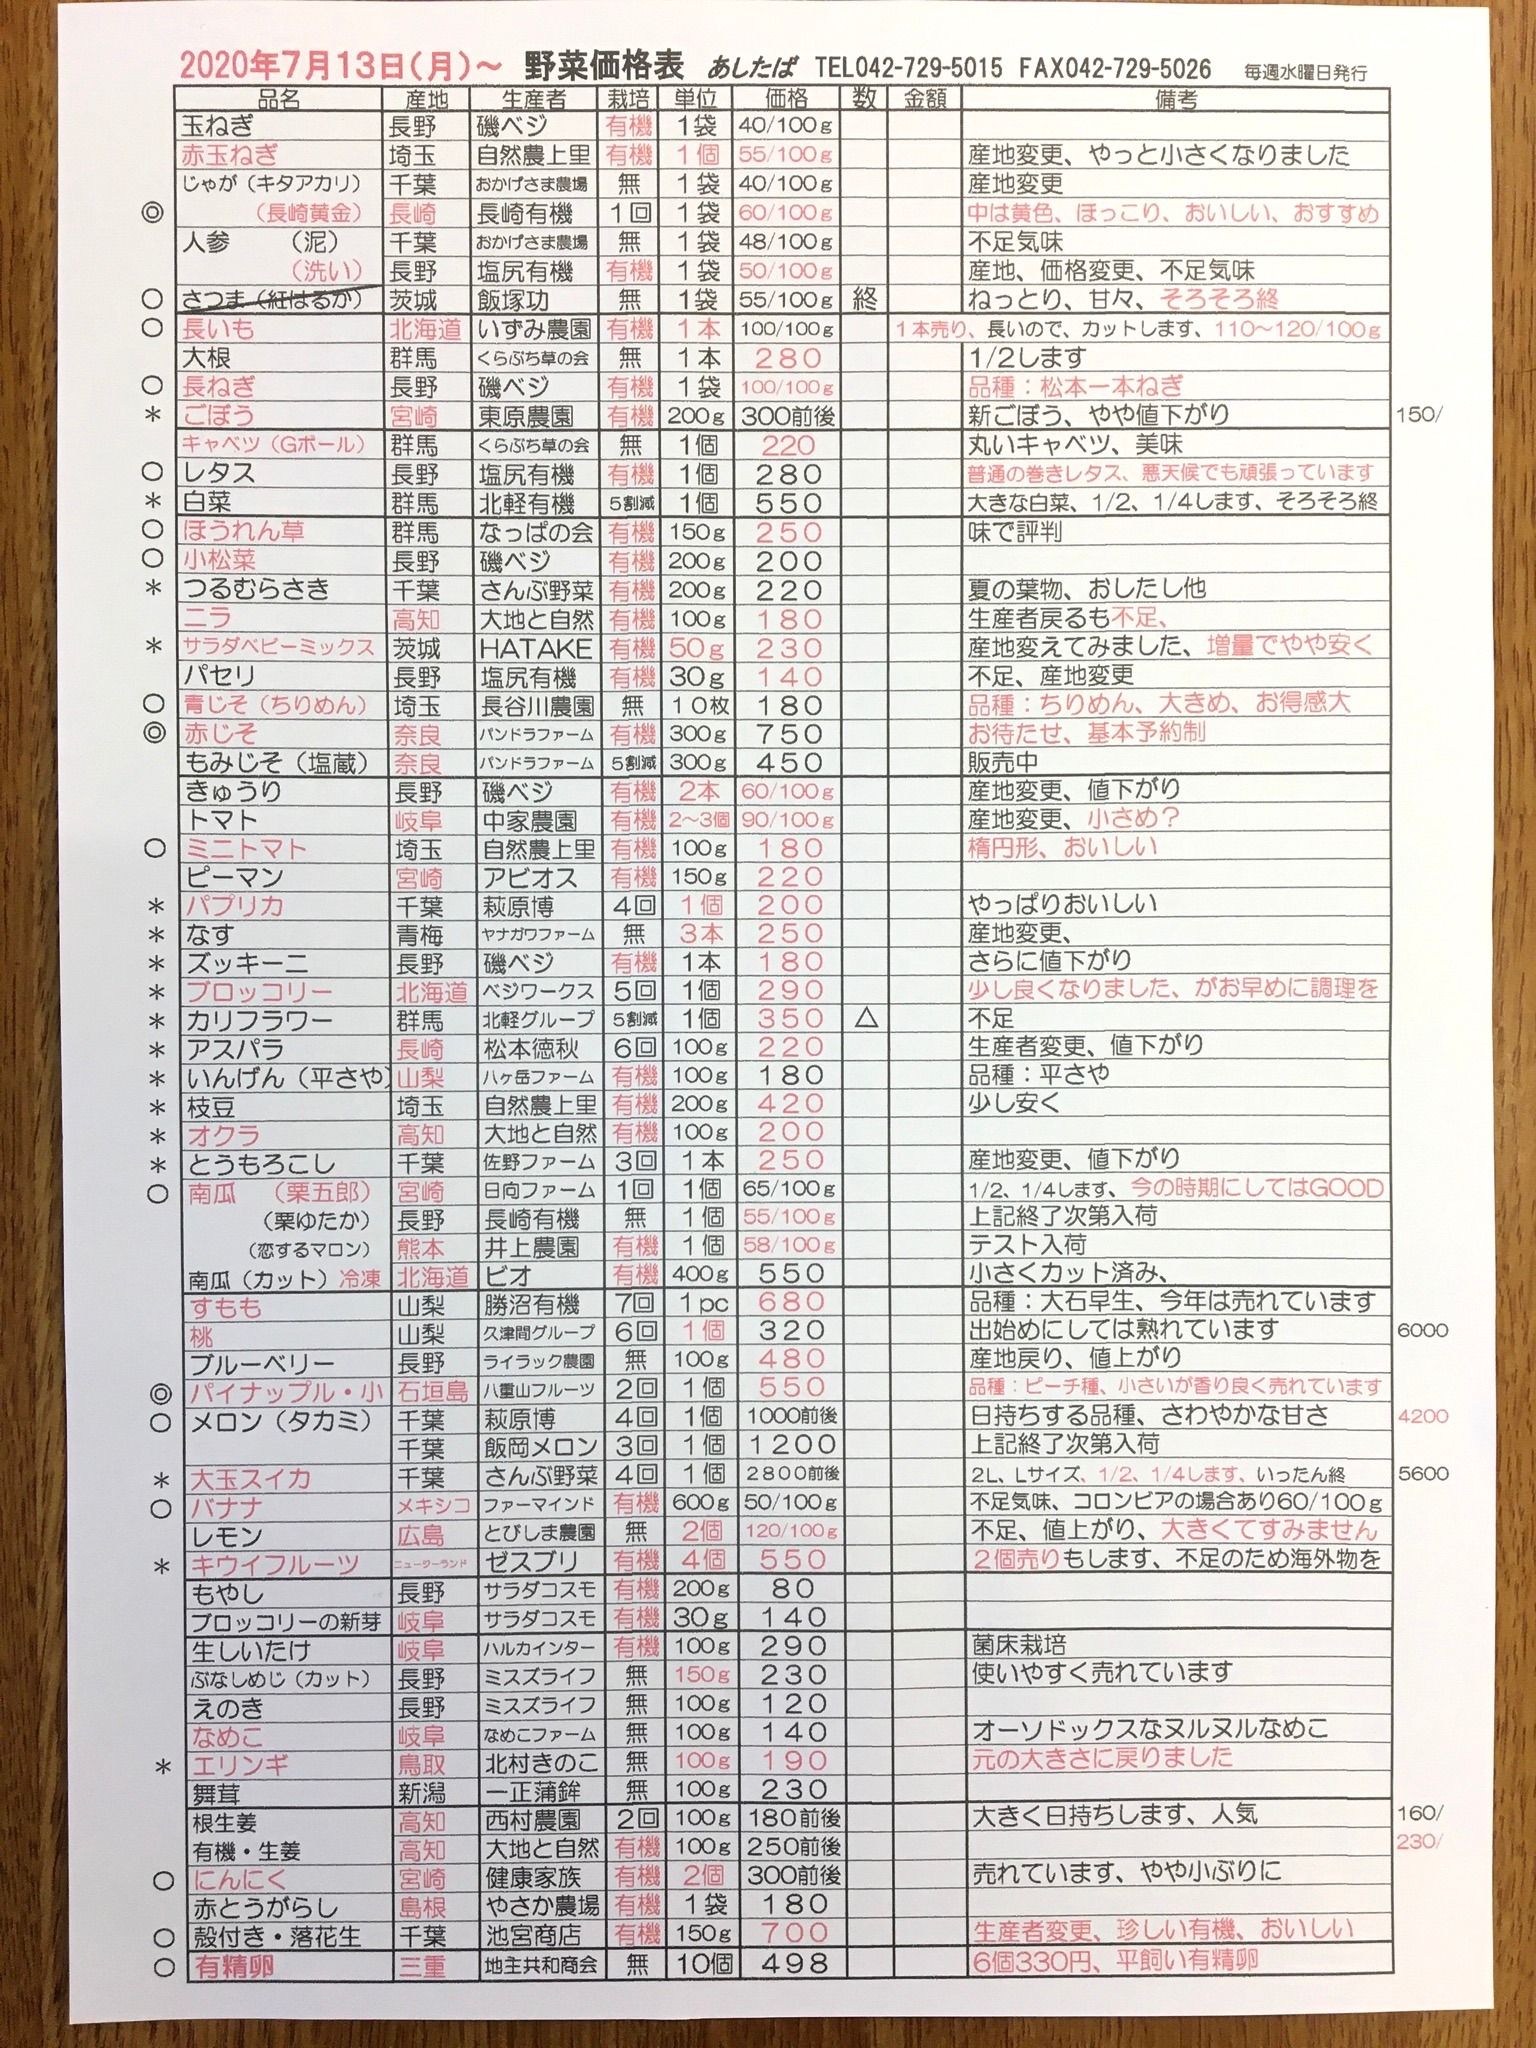 2020年7月13日(月)～ 野菜価格表 あしたば TEL042-729-5015 FAX042-729-5026 毎週水曜日発行
品名 産地 生産者 栽培 単位 価格 数 金額 備考
玉ねぎ 長野 磯ベジ 有機 1袋 40/100g
赤玉ねぎ 埼玉 自然農上里 有機 1個 55/100g 産地変更、やっと小さくなりました
じゃが（キタアカリ） 千葉 おかげさま農場 無 1袋 40/100g 産地変更
◎ （長崎黄金） 長崎 長崎有機 1回 1袋 60/100g 中は黄色、ほっこり、おいしい、おすすめ
人参 （泥） 千葉 おかげさま農場 無 1袋 48/100g 不足気味
（洗い） 長野 塩尻有機 有機 1袋 50/100g 産地、価格変更、不足気味
○ さつま（紅はるか） 茨城 飯塚功 無 1袋 55/100g 終 ねっとり、甘々、そろそろ終
○ 長いも 北海道 いずみ農園 有機 1本 100/100g 1本売り、長いので、カットします、110～120/100g
大根 群馬 くらぶち草の会 無 1本 280 1/2します
○ 長ねぎ 長野 磯ベジ 有機 1袋 100/100g 品種：松本一本ねぎ
* ごぼう 宮崎 東原農園 有機 200g 300前後 新ごぼう、やや値下がり 150/
キャベツ（Gボール） 群馬 くらぶち草の会 無 1個 220 丸いキャベツ、美味
○ レタス 長野 塩尻有機 有機 1個 280 普通の巻きレタス、悪天候でも頑張っています
* 白菜 群馬 北軽有機 5割減 1個 550 大きな白菜、1/2、1/4します、そろそろ終
○ ほうれん草 群馬 なっぱの会 有機 150g 250 味で評判
○ 小松菜 長野 磯ベジ 有機 200g 200
* つるむらさき 千葉 さんぶ野菜 有機 200g 220 夏の葉物、おしたし他
ニラ 高知 大地と自然 有機 100g 180 生産者戻るも不足、
* サラダベビーミックス 茨城 HATAKE 有機 50g 230 産地変えてみました、増量でやや安く
パセリ 長野 塩尻有機 有機 30g 140 不足、産地変更
○ 青じそ（ちりめん） 埼玉 長谷川農園 無 10枚 180 品種：ちりめん、大きめ、お得感大
◎ 赤じそ 奈良 パンドラファーム 有機 300g 750 お待たせ、基本予約制
もみじそ（塩蔵） 奈良 パンドラファーム 5割減 300g 450 販売中
きゅうり 長野 磯ベジ 有機 2本 60/100g 産地変更、値下がり
トマト 岐阜 中家農園 有機 2～3個 90/100g 産地変更、小さめ？
○ ミニトマト 埼玉 自然農上里 有機 100g 180 楕円形、おいしい
ピーマン 宮崎 アビオス 有機 150g 220
* パプリカ 千葉 萩原博 4回 1個 200 やっぱりおいしい
* なす 青梅 ヤナガワファーム 無 3本 250 産地変更、
* ズッキーニ 長野 磯ベジ 有機 1本 180 さらに値下がり
* ブロッコリー 北海道 ベジワークス 5回 1個 290 少し良くなりました、がお早めに調理を
* カリフラワー 群馬 北軽グループ 5割減 1個 350 △ 不足
* アスパラ 長崎 松本徳秋 6回 100g 220 生産者変更、値下がり
* いんげん（平さや） 山梨 八ヶ岳ファーム 有機 100g 180 品種：平さや
* 枝豆 埼玉 自然農上里 有機 200g 420 少し安く
* オクラ 高知 大地と自然 有機 100g 200
* とうもろこし 千葉 佐野ファーム 3回 1本 250 産地変更、値下がり
○ 南瓜 （栗五郎） 宮崎 日向ファーム 1回 1個 65/100g 1/2、1/4します、今の時期にしてはGOOD
（栗ゆたか） 長野 長崎有機 無 1個 55/100g 上記終了次第入荷
（恋するマロン） 熊本 井上農園 有機 1個 58/100g テスト入荷
南瓜（カット）冷凍 北海道 ビオ 有機 400g 550 小さくカット済み、
すもも 山梨 勝沼有機 7回 1pc 680 品種：大石早生、今年は売れています
桃 山梨 久津間グループ 6回 1個 320 出始めにしては熟れています 6000
ブルーベリー 長野 ライラック農園 無 100g 480 産地戻り、値上がり
◎ パイナップル・小 石垣島 八重山フルーツ 2回 1個 550 品種：ピーチ種、小さいが香り良く売れています
○ メロン（タカミ） 千葉 萩原博 4回 1個 1000前後 日持ちする品種、さわやかな甘さ 4200
千葉 飯岡メロン 3回 1個 1200 上記終了次第入荷
* 大玉スイカ 千葉 さんぶ野菜 4回 1個 2800前後 2L、Lサイズ、1/2、1/4します、いったん終 5600
○ バナナ メキシコ ファーマインド 有機 600g 50/100g 不足気味、コロンビアの場合あり60/100g
レモン 広島 とびしま農園 無 2個 120/100g 不足、値上がり、大きくてすみません
* キウイフルーツ ニュージーランド ゼスプリ 有機 4個 550 2個売りもします、不足のため海外物を
もやし 長野 サラダコスモ 有機 200g 80
ブロッコリーの新芽 岐阜 サラダコスモ 有機 30g 140
生しいたけ 岐阜 ハルカインター 有機 100g 290 菌床栽培
ぶなしめじ（カット） 長野 ミスズライフ 無 150g 230 使いやすく売れています
えのき 長野 ミスズライフ 無 100g 120
なめこ 岐阜 なめこファーム 無 100g 140 オーソドックスなヌルヌルなめこ
* エリンギ 鳥取 北村きのこ 無 100g 190 元の大きさに戻りました
舞茸 新潟 一正蒲鉾 無 100g 230
根生姜 高知 西村農園 2回 100g 180前後 大きく日持ちします、人気 160/
有機・生姜 高知 大地と自然 有機 100g 250前後 230/
○ にんにく 宮崎 健康家族 有機 2個 300前後 売れています、やや小ぶりに
赤とうがらし 島根 やさか農場 有機 1袋 180
○ 殻付き・落花生 千葉 池宮商店 有機 150g 700 生産者変更、珍しい有機、おいしい
○ 有精卵 三重 地主共和商会 無 10個 498 6個330円、平飼い有精卵